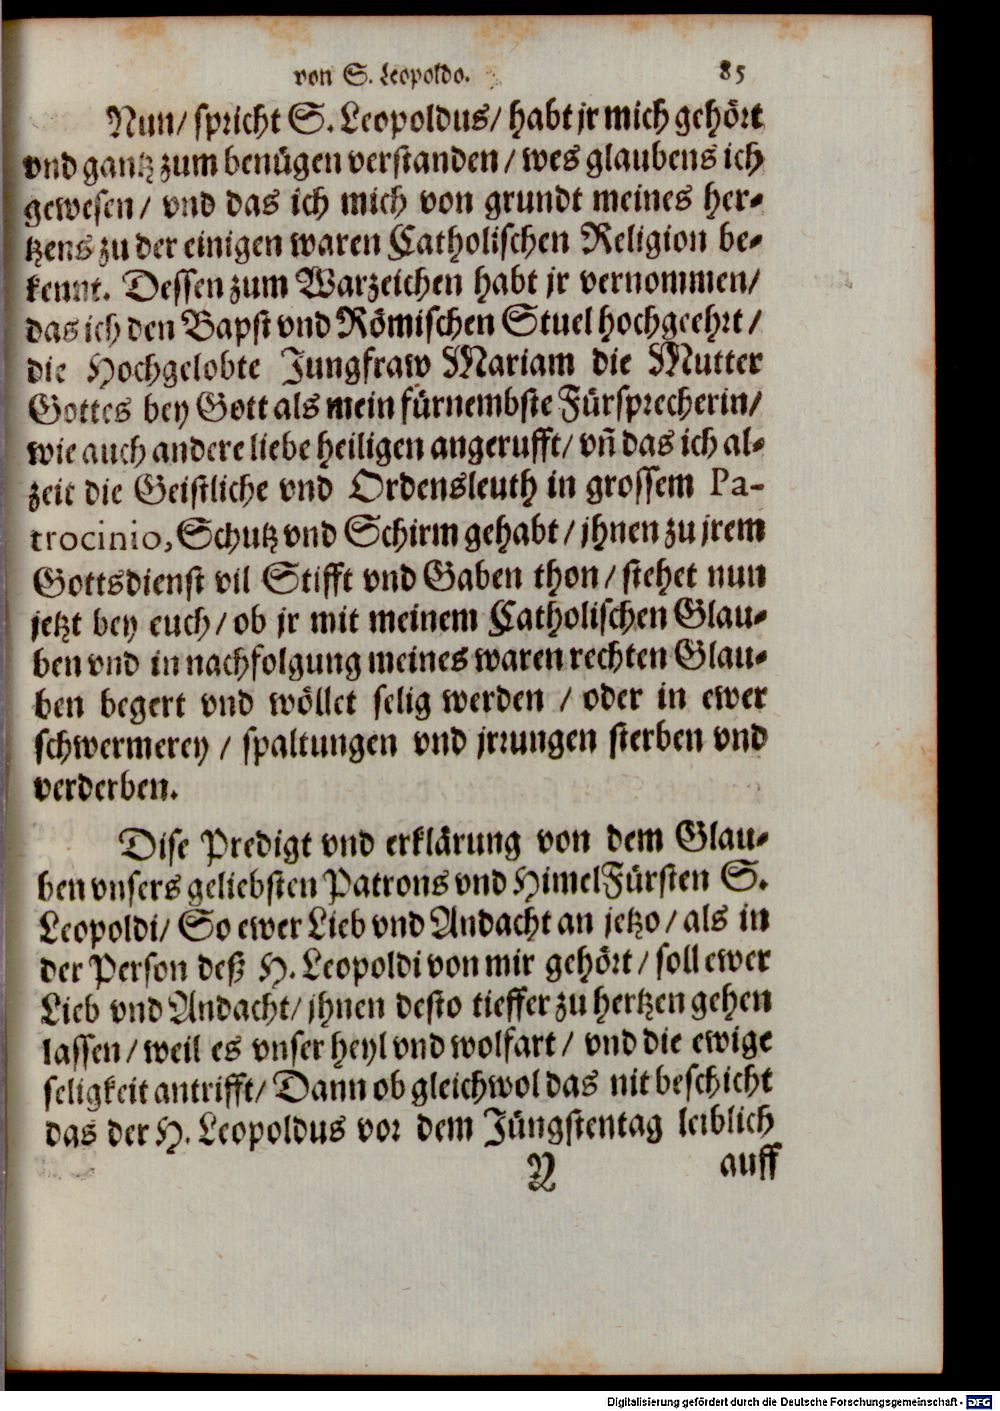 von S. Leopoldo. 85
Nun/ spricht S. Leopoldus/ habt jr mich gehört
vnd gantz zum benügen verstanden/ wes glaubens ich
gewesen/ vnd das ich mich von grundt meines her-
tzens zu der einigen waren Catholischen Religion be-
kennt. Dessen zum Warzeichen habt jr vernommen/
das ich den Bapst vnd Römischen Stuel hochgeehrt/
die Hochgelobte Jungfraw Mariam die Mutter
Gottes bey Gott als mein fürnembste Fürsprecherin/
wie auch andere liebe heiligen angerufft/ vñ das ich al-
zeit die Geistliche vnd Ordensleuth in grossem Pa-
trocinio, Schutz vnd Schirm gehabt/ jhnen zu jrem
Gottsdienst vil Stifft vnd Gaben thon/ stehet nun
jetzt bey euch/ ob jr mit meinem Catholischen Glau-
ben vnd in nachfolgung meines waren rechten Glau-
ben begert vnd wöllet selig werden / oder in ewer
schwermerey / spaltungen vnd jrrungen sterben vnd
verderben.
Dise Predigt vnd erklärung von dem Glau-
ben vnsers geliebsten Patrons vnd HimelFürsten S.
Leopoldi/ So ewer Lieb vnd Andacht an jetzo/ als in
der Person deß H. Leopoldi von mir gehört/ soll ewer
Lieb vnd Andacht/ jhnen desto tieffer zu hertzen gehen
lassen/ weil es vnser heyl vnd wolfart/ vnd die ewige
seligkeit antrifft/ Dann ob gleichwol das nit beschicht
das der H. Leopoldus vor dem Jüngstentag leiblich
N auff
Digitalisierung gefördert durch die Deutsche Forschungsgemeinschaft - DFG